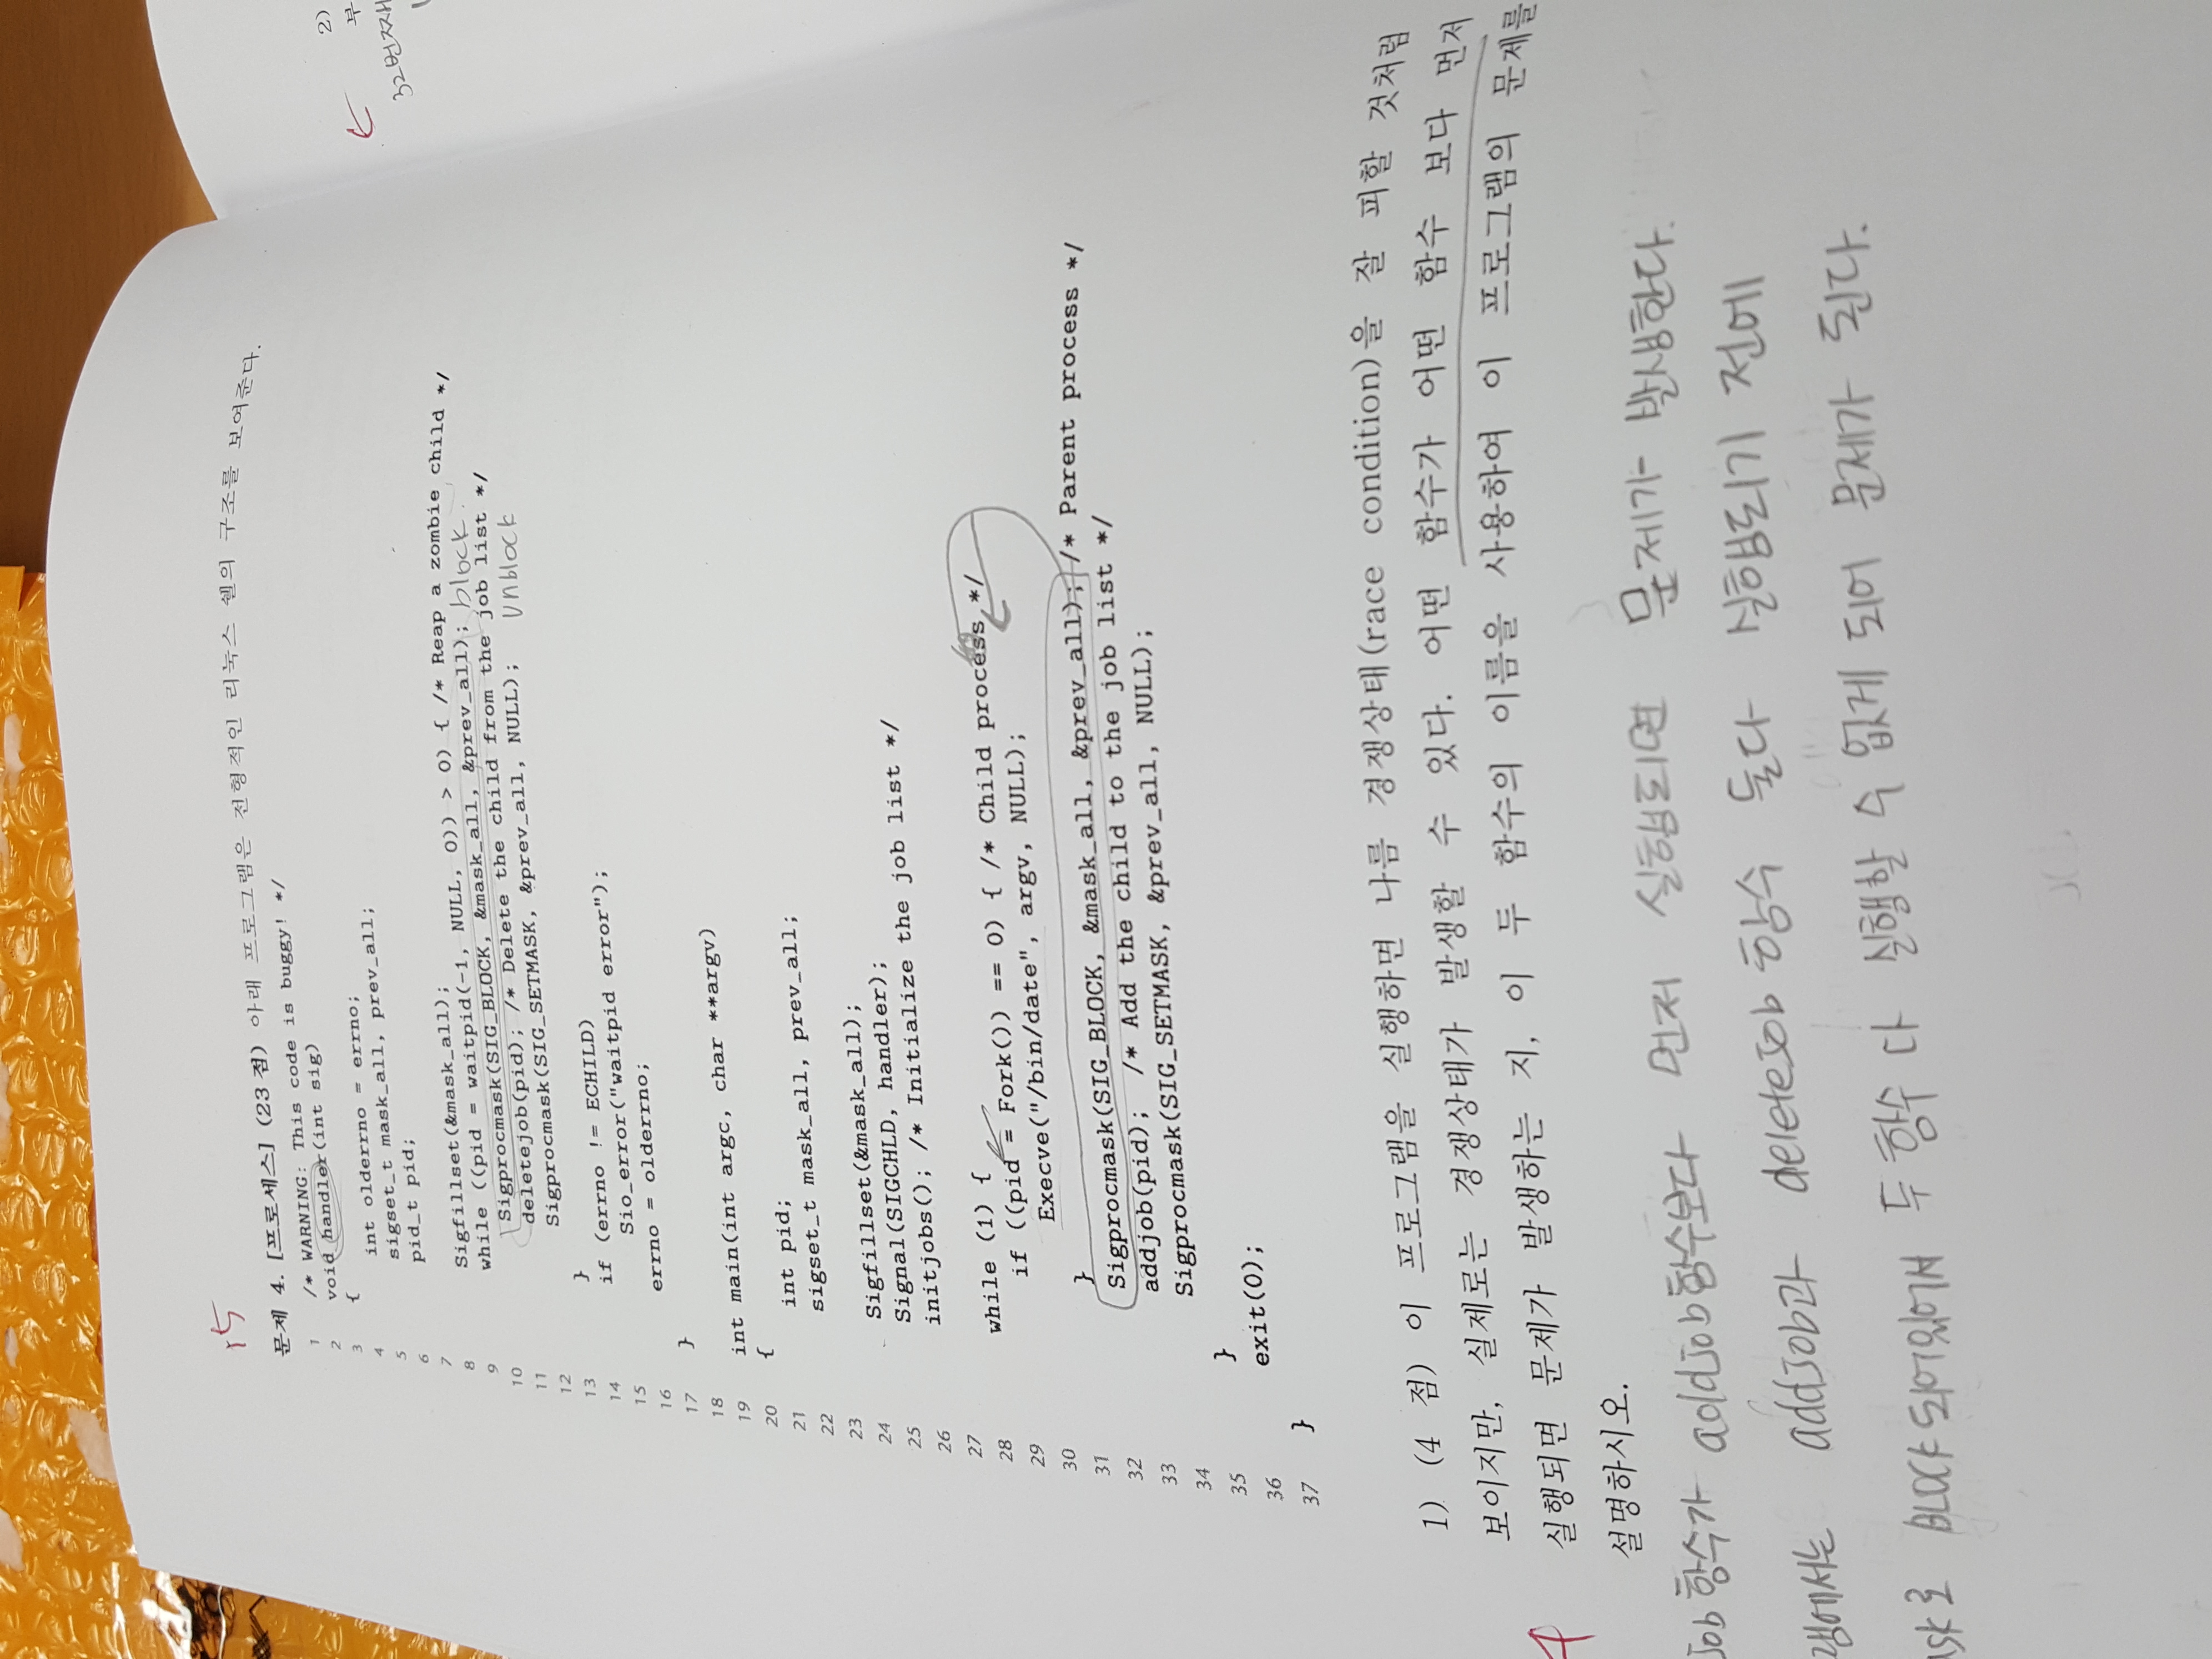 15
문제 4. [프로세스] (23 점) 아래 프로그램은 전형적인 리눅스 쉘의 구조를 보여준다.
1 /* WARNING: This code is buggy! */
2 void handler(int sig)
3 {
4 int olderrno = errno;
5 sigset_t mask_all, prev_all;
6 pid_t pid;
7
8 Sigfillset(&mask_all);
9 while ((pid = waitpid(-1, NULL, 0)) > 0) { /* Reap a zombie child */
10 Sigprocmask(SIG_BLOCK, &mask_all, &prev_all); block
11 deletejob(pid); /* Delete the child from the job list */
12 Sigprocmask(SIG_SETMASK, &prev_all, NULL); unblock
13 }
14 if (errno != ECHILD)
15 Sio_error("waitpid error");
16 errno = olderrno;
17 }
18
19 int main(int argc, char **argv)
20 {
21 int pid;
22 sigset_t mask_all, prev_all;
23
24 Sigfillset(&mask_all);
25 Signal(SIGCHLD, handler);
26 initjobs(); /* Initialize the job list */
27
28 while (1) {
29 if ((pid = Fork()) == 0) { /* Child process */
30 Execve("/bin/date", argv, NULL);
31 }
32 Sigprocmask(SIG_BLOCK, &mask_all, &prev_all); /* Parent process */
33 addjob(pid); /* Add the child to the job list */
34 Sigprocmask(SIG_SETMASK, &prev_all, NULL);
35 }
36 exit(0);
37 }
1) (4 점) 이 프로그램을 실행하면 나름 경쟁상태(race condition)을 잘 피할 것처럼
보이지만, 실제로는 경쟁상태가 발생할 수 있다. 어떤 함수가 어떤 함수 보다 먼저
실행되면 문제가 발생하는 지, 이 두 함수의 이름을 사용하여 이 프로그램의 문제를
설명하시오.
4
Job 함수가 addJob함수보다 먼저 실행되면 문제가 발생한다.
램에서는 addJob과 deleteJob 함수 둘다 실행되기 전에
ask로 BLOCK되어있어서 두 함수 다 실행할 수 없게 되어 문제가 된다.
2)
부
32번째